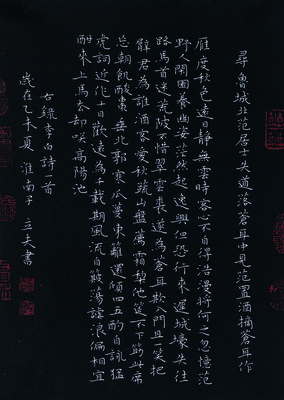 尋魯城北范居士失道落蒼耳中見范置酒摘蒼耳作
雁度秋色遠日靜無雲時客心不自得浩漫將何之忽憶范
野人閑園養幽姿茫然起逸興但恐行來遲城壕失往
路馬首迷荒陂不惜翠雲裘遂為蒼耳欺入門且一笑把
臂君為誰酒客愛秋蔬山盤薦霜梨他筵不下箸此席
忘朝飢酸棗垂北郭寒瓜蔓東籬還傾四五酌自詠猛
虎詞近作十日歡遠為千載期風流自簸蕩謔浪偏相宜
酣來上馬去却笑高陽池
右錄李白詩一首
歲在乙未夏 淮南子 立夫書